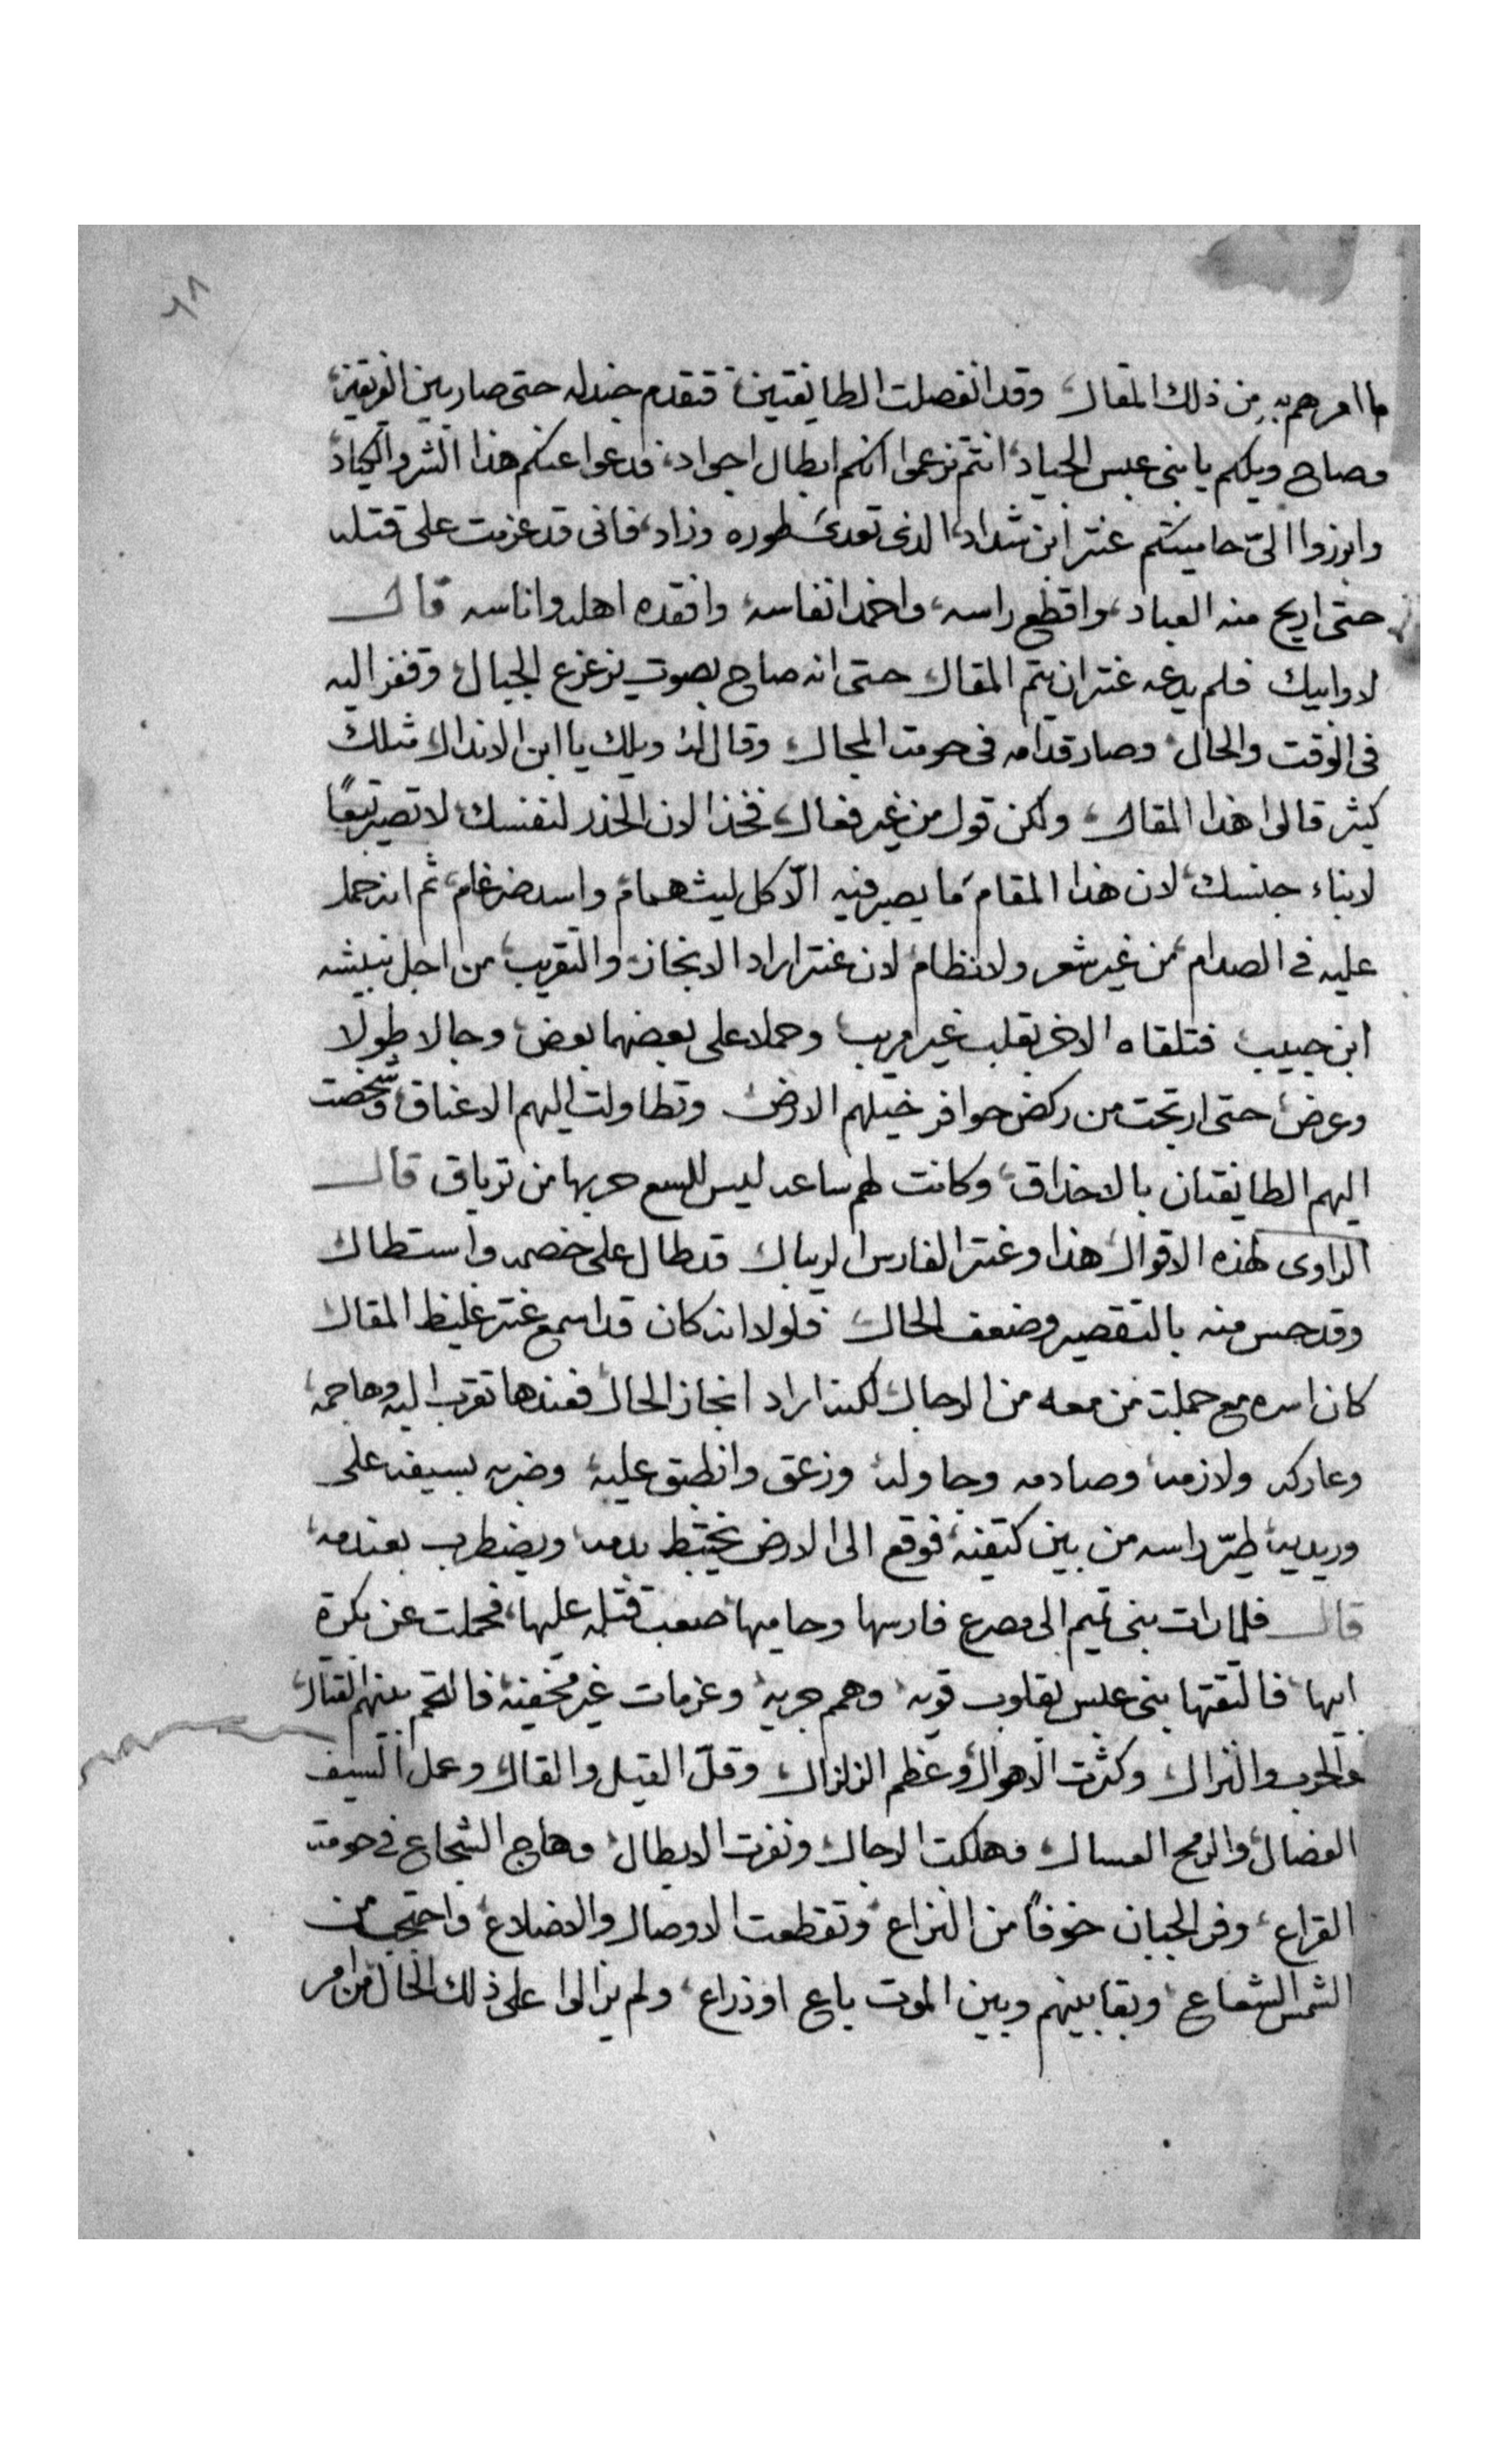 ٦٨
ما امرهم به من ذلك المقال، وقد انفصلت الطايفتين، فتقدم جندله حتى صار بين الفريقين،
وصاح ويلكم يا بنى عبس الجياد، انتم تزعموا انكم ابطال اجواد، فدعوا عنكم هذا الشر والكياد،
وابرزوا الىّ حاميتكم عنتر ابن شداد، الذى تعدى طوره وزاد، فانى قد عزمت على قتله
حتى اريح منه العباد، واقطع راسه، واخمد انفاسه، وافقده اهله واناسه قال
لا وابيك فلم يدعه عنتر ان يتم المقال حتى انه صاح بصوت يزعزع الجبال، وقفز اليه
فى الوقت والحال، وصار قدامه فى حومت المجال، وقال له ويلك يا ابن الاندال مثلك
كيثر قالوا هذا المقال، ولكن قول من غير فعال، فخذ الان الحذر لنفسك لا تصير تبعًا
لابناء جنسك، لان هذا المقام ما يصبر فيه الّا كل ليث همام، واسد ضرغام، ثم انه حمل
عليه فى الصدام، من غير شعر ولا نظام، لان عنتر اراد الانجاز، والتقريب، من اجل نبيشه
ابن حبيب فتلقاه الاخر بقلب غير مريب، وحملا على بعضهما بعض، وجالا طولا
وعرض، حتى ارتجت من ركض حوافر خيلهم الارض، وتطاولت اليهم الاعناق، وشخصت
اليهم الطايفتان بالاحداق، وكانت لهم ساعه ليس للسع حربها من ترياق قال
الراوى لهذه الاقوال، هذا وعنتر الفارس الريبال، قد طال على خصمه واستطال،
وقد حس منه بالتقصير وضعف الحال، فلولا انه كان قد اسمع عنتر غليظ المقال،
كان اسره مع جملت من معه من الرجال، لكنه اراد انجاز الحال، فعندها تقرب اليه وهاجمه،
وعاركه ولازمه، وصادمه وجاوله، وزعق وانطبق عليه، وضربه بسيفه على
وريديه، طيّر راسه من بين كتفيه، فوقع الى الارض يختبط بدمه، ويضطرب بعندمه،
قال فلما رات بنى تميم الى مصرع فارسها وحاميها، صعب قتله عليها، فحملت عن بكرة
ابيها، فالتقتها بنى عبس بقلوب قويه، وهمم جريه، وعزمات غير مخفيه، فالتحم بينهم القتال،
والحرب والنزال، وكثرت الاهوال، وعظم الزلزال، وقلّ القيل والقال، وعمل السيف
الفضال، والرمح العسال، وهلكت الرجال، ونفرت الابطال، وهاج الشجاع فى حومت
القراع، وفر الجبان خوفاً من النزاع، وتقطعت الاوصال والاضلاع، واحتجب من
الشمس الشعاع، وبقا بينهم وبين الموت باع او ذراع، ولم يزالوا على ذلك الحال من امر